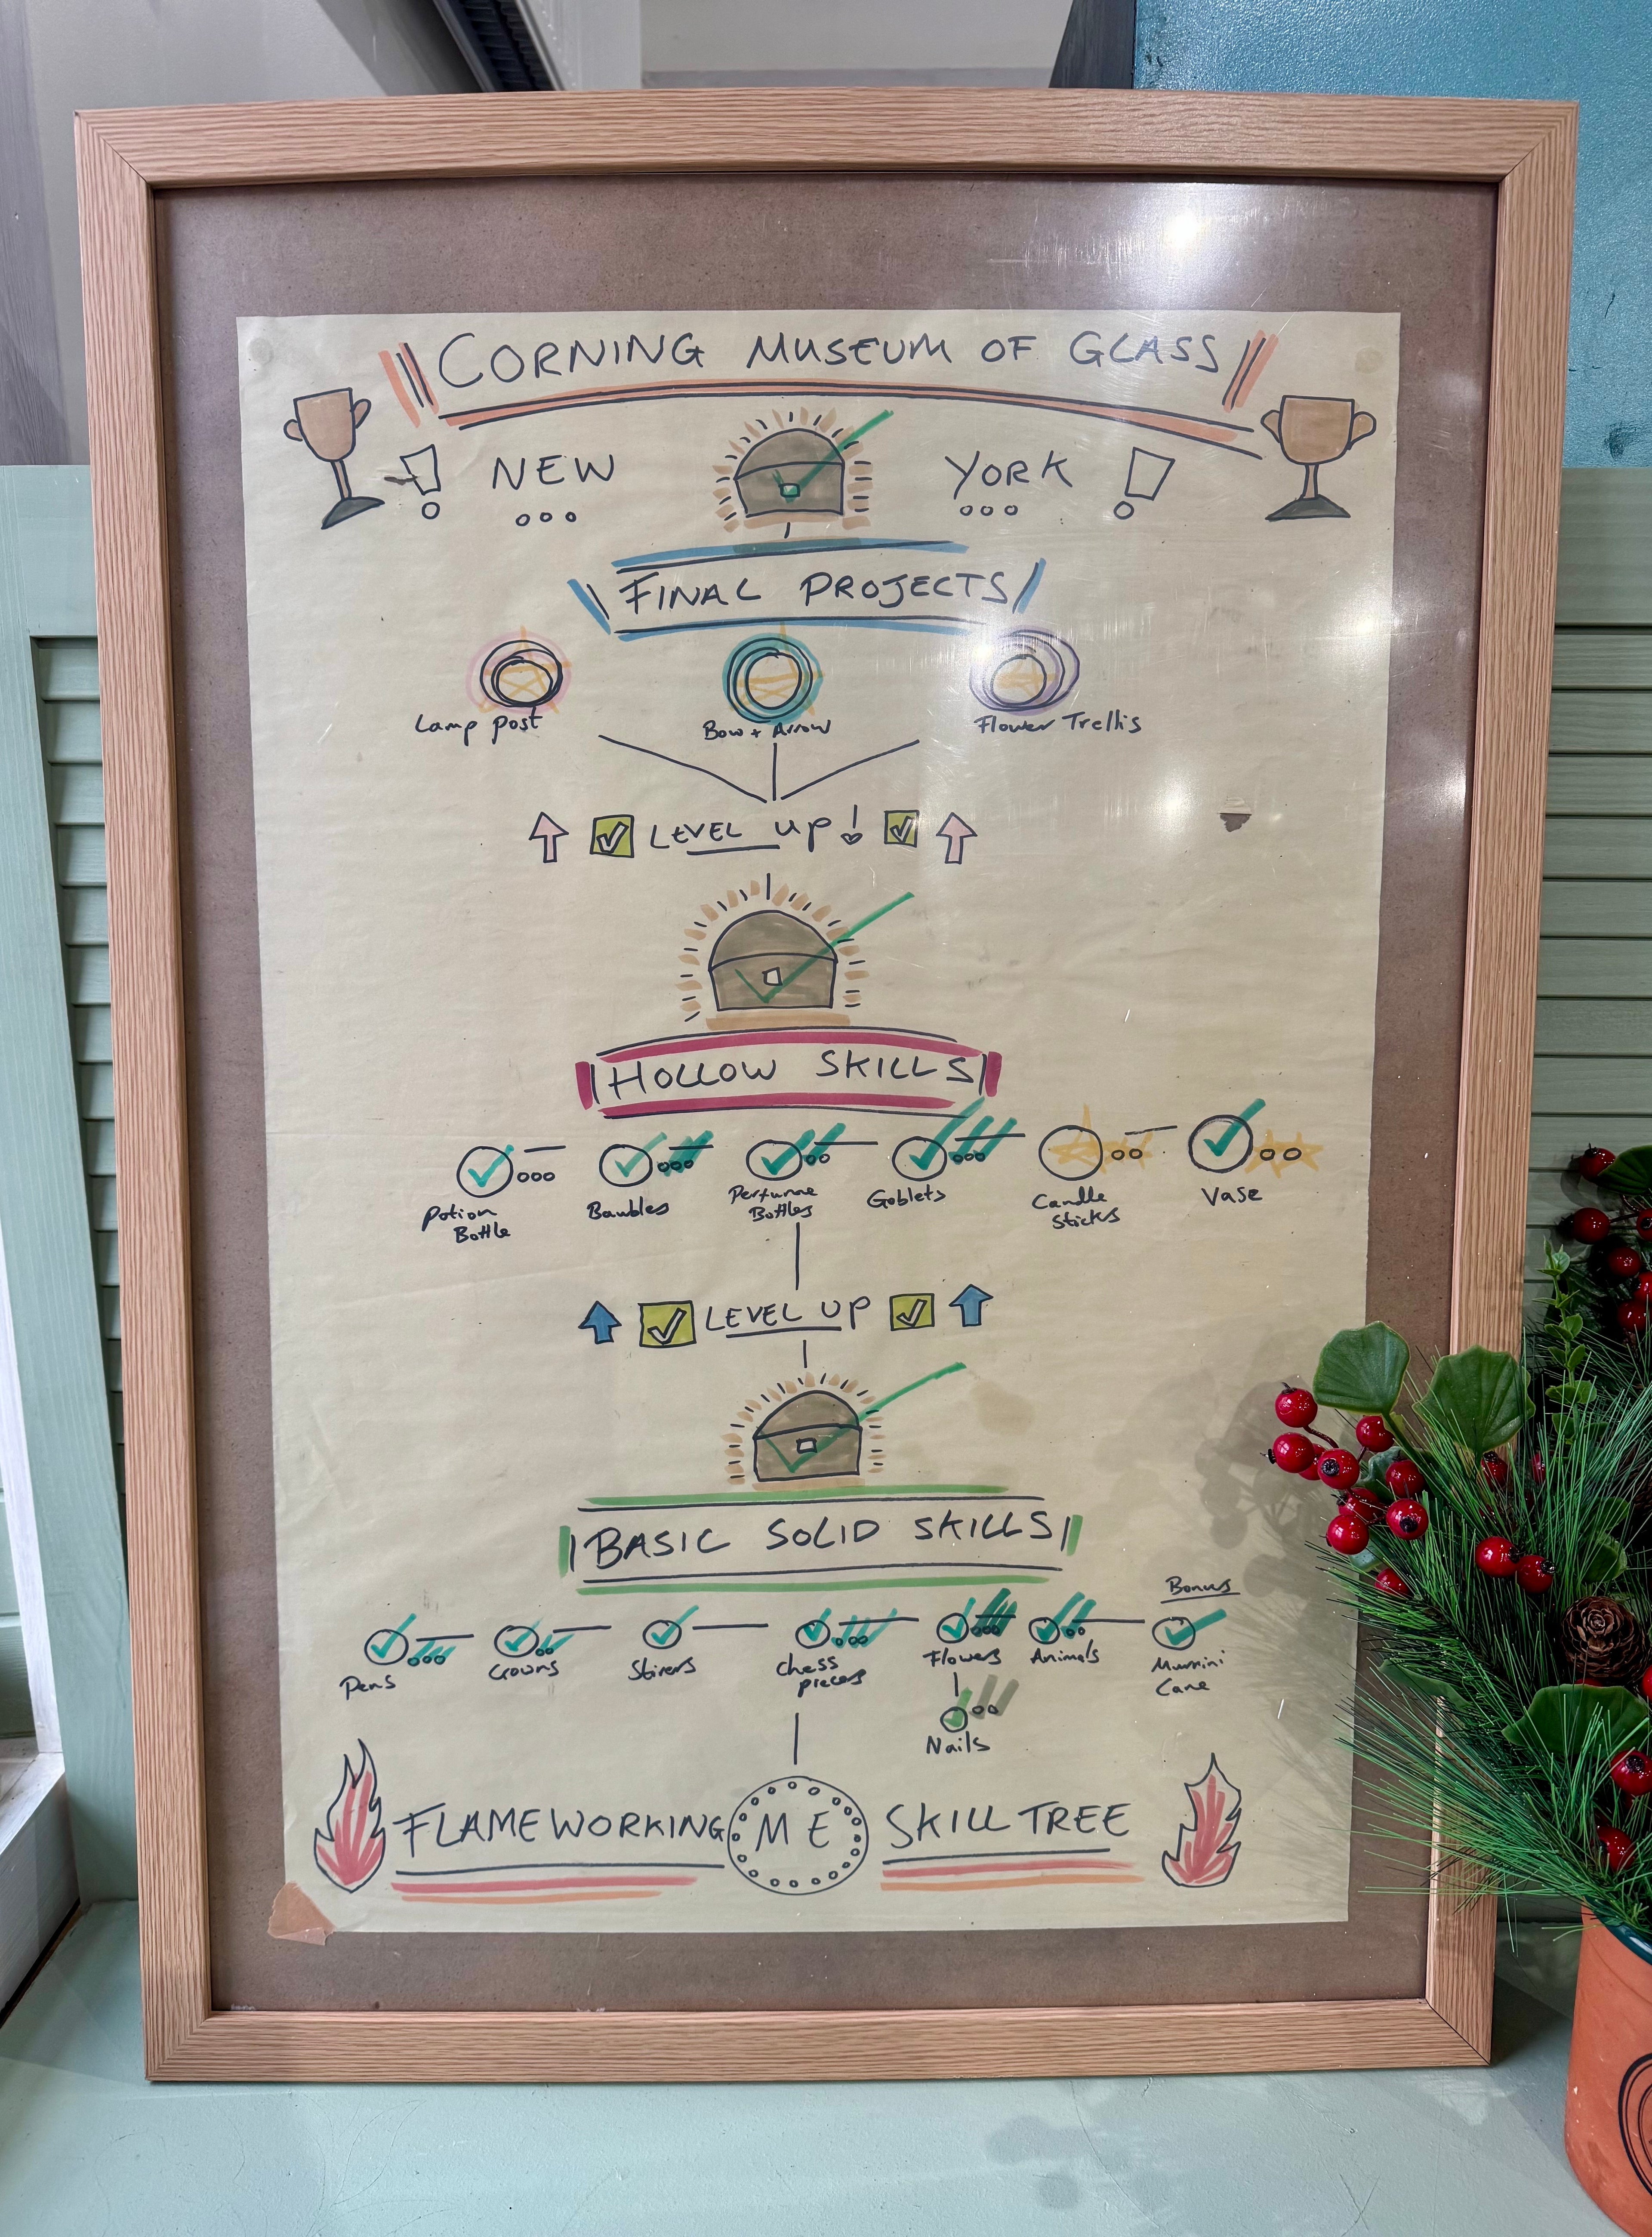 CORNING MUSEUM OF GLASS
! NEW YORK !
FINAL PROJECTS
Lamp post
Bow + Arrow
Flower Trellis
LEVEL UP!
HOLLOW SKILLS
Potion Bottle
Baubles
Perfume Bottles
Goblets
Candle Sticks
Vase
LEVEL UP
BASIC SOLID SKILLS
Bonus
Pens
Crowns
Stirers
Chess pieces
Flowers
Animals
Murrini Cane
Nails
FLAMEWORKING ME SKILL TREE